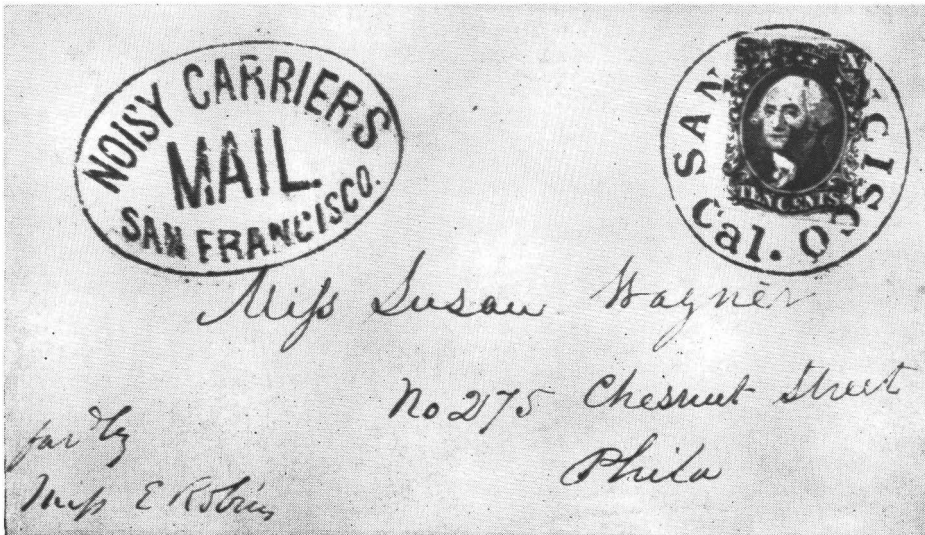 NOISY CARRIERS
MAIL.
SAN FRANCISCO.
SAN CISCO
Cal.
TEN CENTS
Miss Susan Wagner
No 275 Chesnut Street
Phila
Miss E Robins